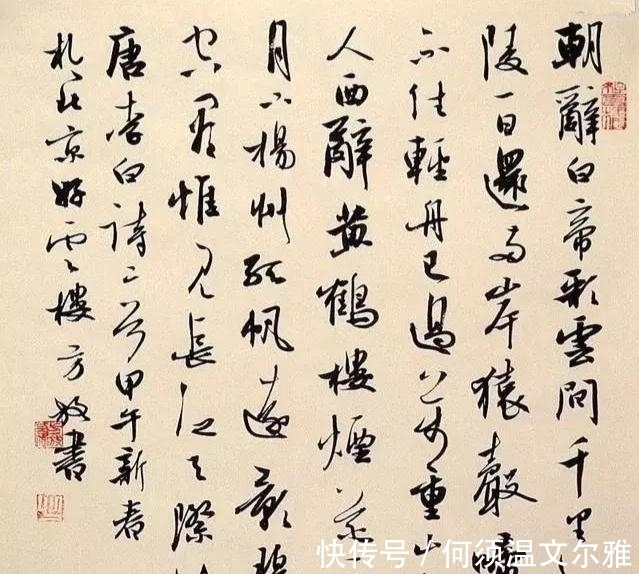 朝辭白帝彩雲間千里
陵一日還兩岸猿聲
不住輕舟已過萬重山
人西辭黃鶴樓煙花
月下楊州孤帆遠影碧
空盡惟見長江天際
唐李白詩二首甲午新春
於北京樓方書
快传号 / 何须温文尔雅